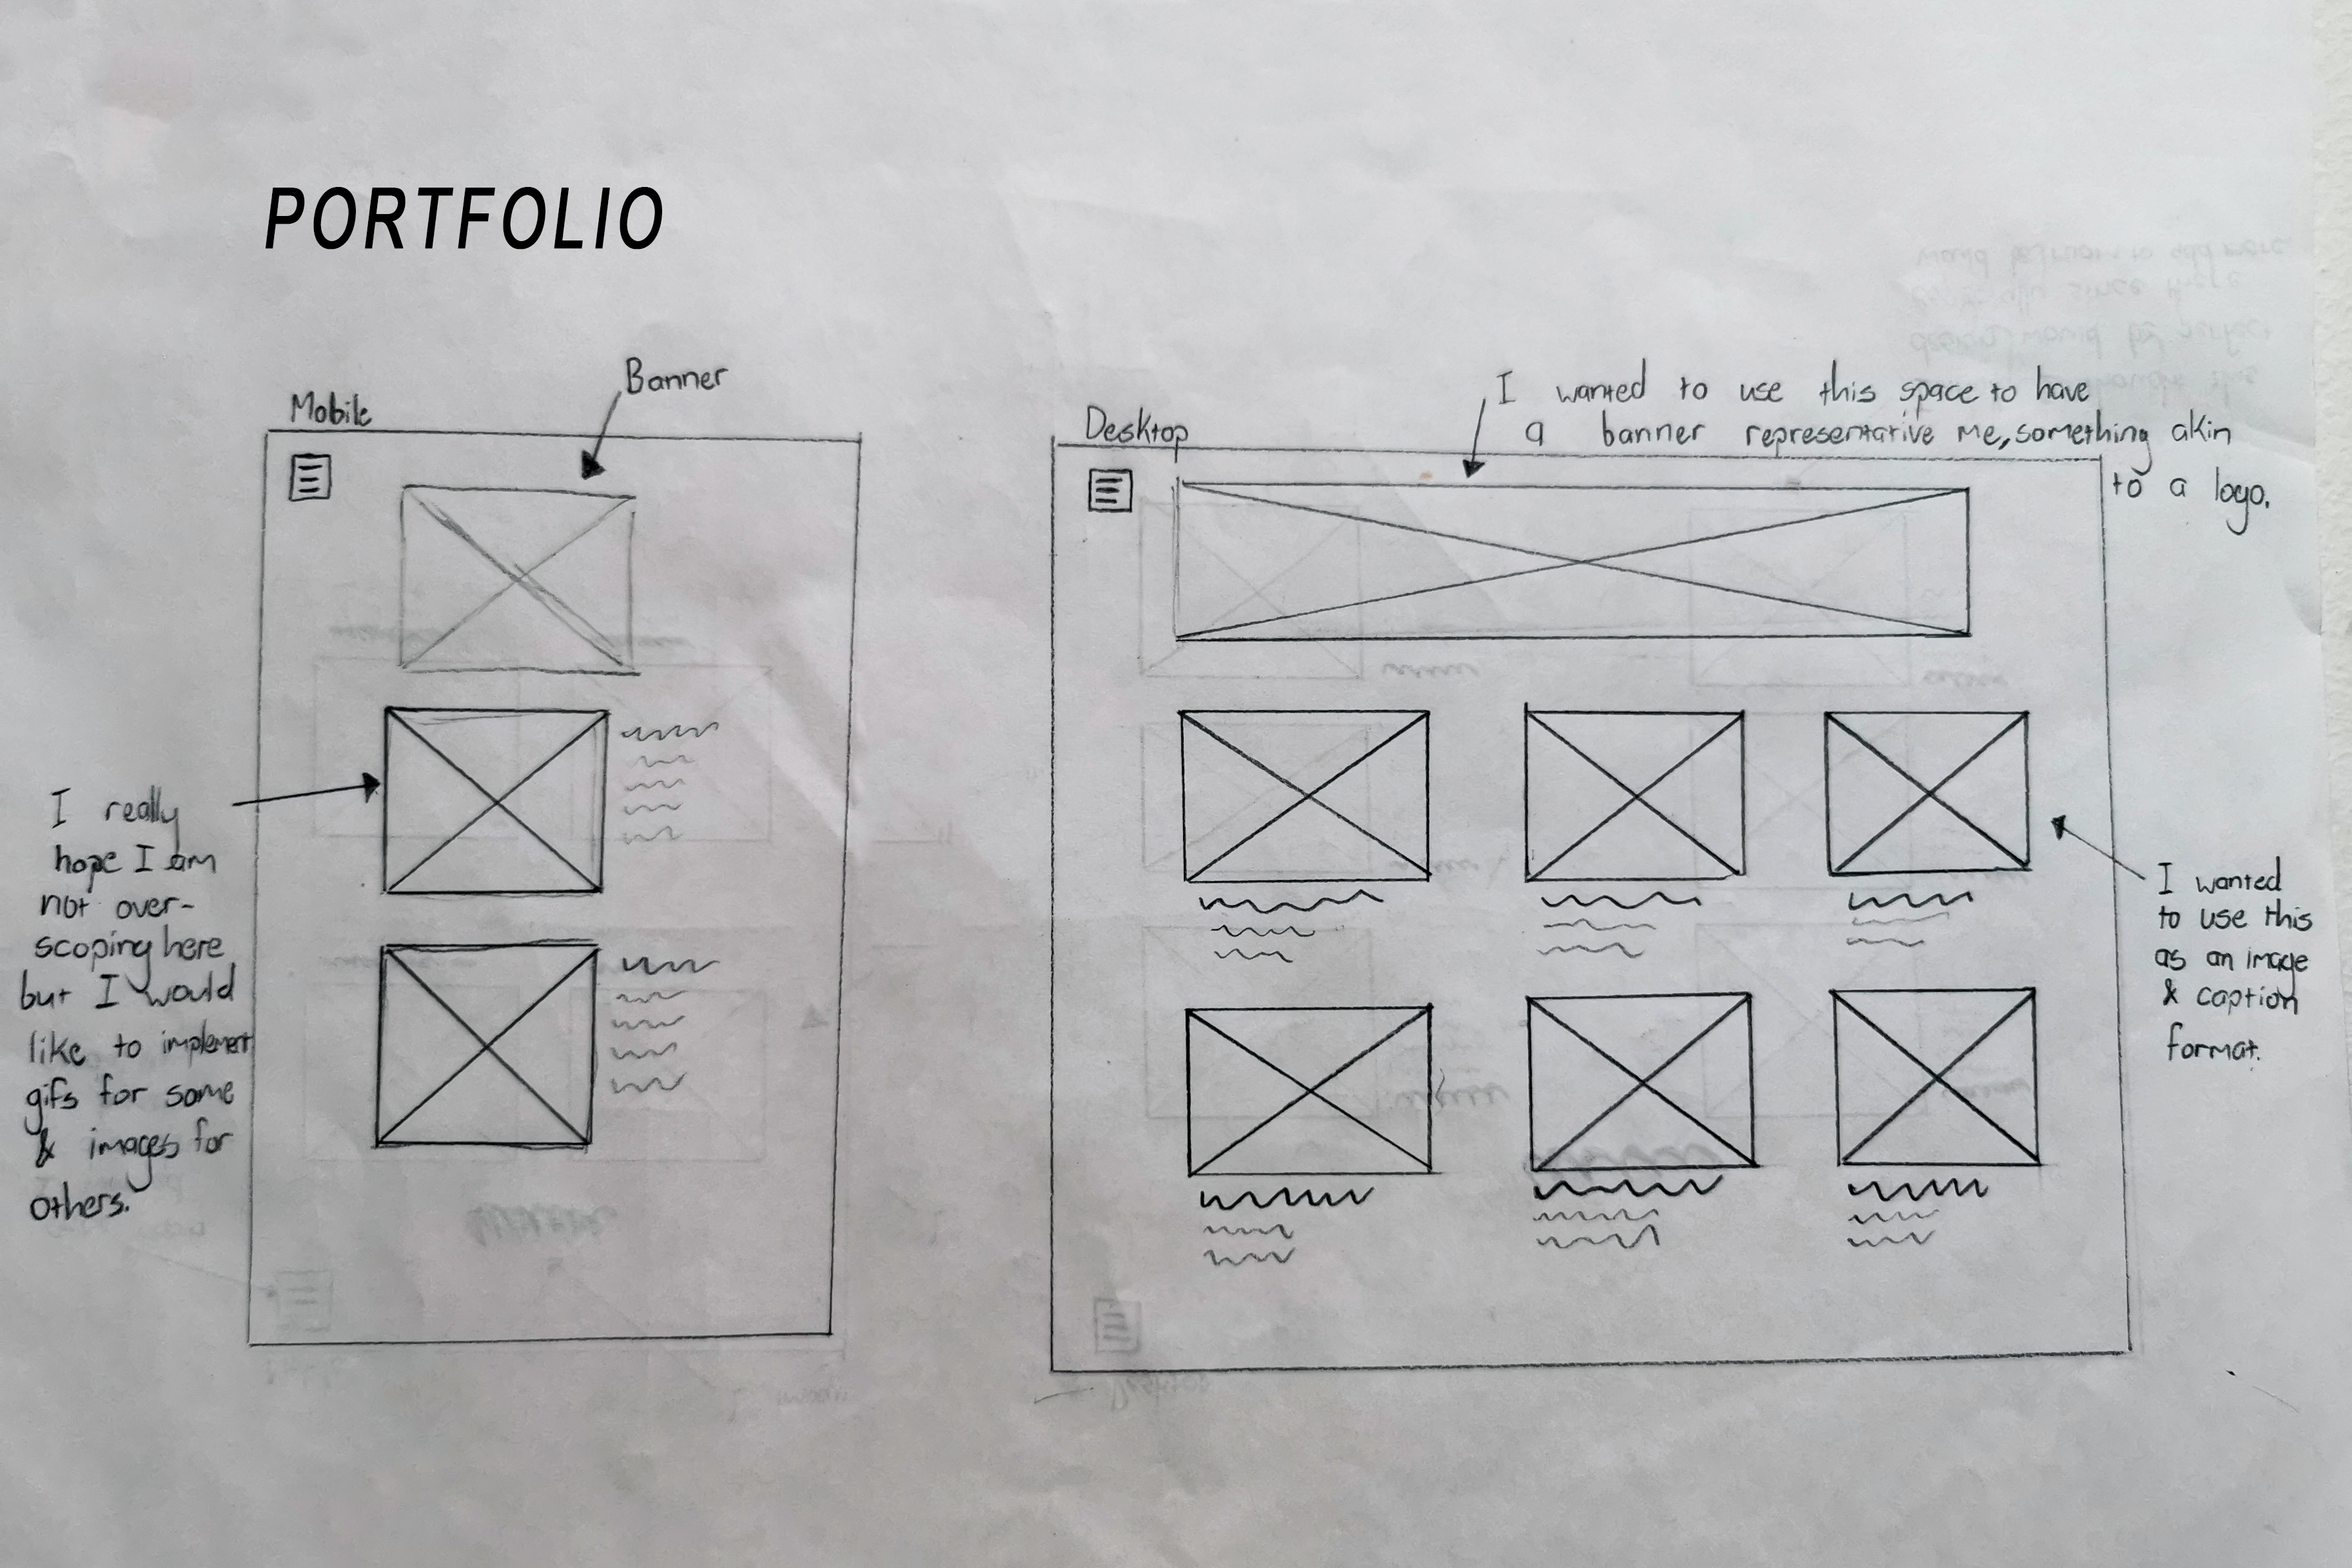 PORTFOLIO
Banner
Mobile
I really
hope I am
not over-
scoping here
but I would
like to implement
gifs for some
& images for
others.
I wanted to use this space to have
a banner representative me, something akin
to a logo.
Desktop
I wanted
to use this
as an image
& caption
format.